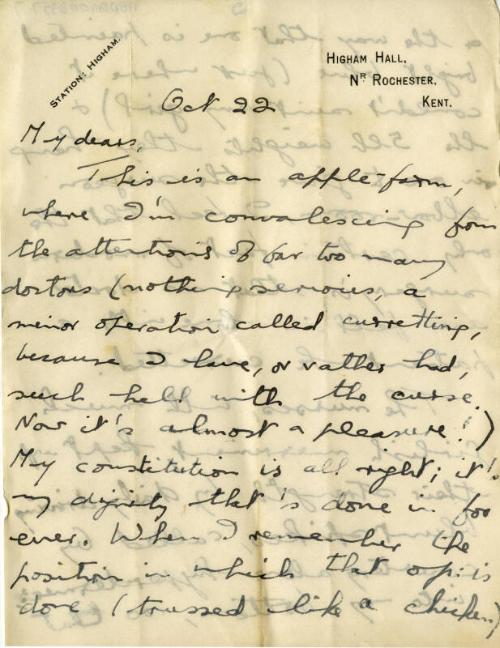 STATION: HIGHAM.
HIGHAM HALL,
NR ROCHESTER,
KENT.
Oct 22
My dears,
This is an apple-farm,
where I'm convalescing from
the attentions of far too many
doctors (nothing serious, a
minor operation called curretting,
because I have, or rather had,
such hell with the curse.
Now it's almost a pleasure!)
My constitution is all right; it's
my dignity that's done in for
ever. When I remember the
position in which that op: is
done (trussed like a chicken)